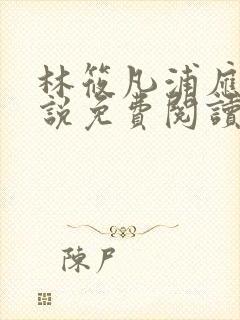 林筱凡浦应
說免費閱讀
陳尸